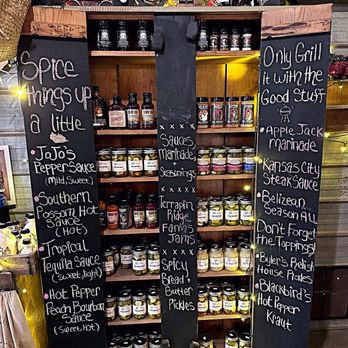 Spice
things up
a little
JoJo's
Pepper Sauce
(Mild, Sweet)
Southern
Possom Hot
Sauce
Tropical
Tequila Sauce
(Sweet, light)
Hot Pepper
Peach Bourbon
Sauce
(Sweet, Hot)
x x x x
Sauces
Marinades
+
Seasonings
x x x x
Terrapin
Ridge
Farms
Jams
x x x x
Spicy
Bread +
Butter
Pickles
Only Grill
it with the
Good Stuff
Apple Jack
Marinade
Kansas City
Steak Sauce
Belizean
Season All
Don't Forget
the Toppings!
Byler's Relish
House Pickles
Blackbird's
Hot Pepper
Kraut